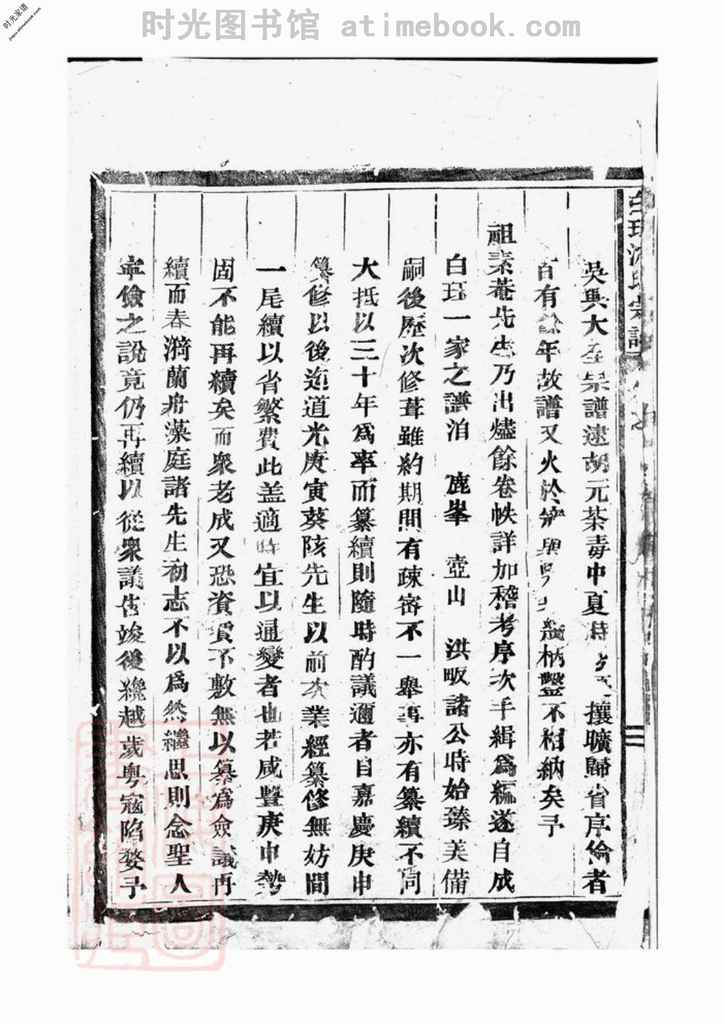 时光图书馆 atimebook.com
时光家谱
吳興大宗譜逮胡元荼毒中夏時攘曠歸省序倫者
百有餘年故譜又火於兵柄鑿不相納矣予
祖素菴先生乃出燼餘卷帙詳加稽考序次手緝爲編遂自成
白珏一家之譜洎 鹿峯 壺山 洪畈諸公時始臻美備
嗣後歷次修葺雖約期間有疎密不一舉事亦有纂續不同
大抵以三十年爲率而纂續則隨時酌議邇者自嘉慶庚申
纂修以後迨道光庚寅葵陔先生以前次業經纂修無妨間
一尾續以省繁費此盖適時宜以通變者也若咸豐庚申勢
固不能再續矣而衆老成又恐資費不敷無以纂爲僉議再
續而春漪蘭舟藻庭諸先生初志不以爲然繼思則念聖人
寧儉之說竟仍再續以從衆議告竣後纔越歲粵寇陷婺予